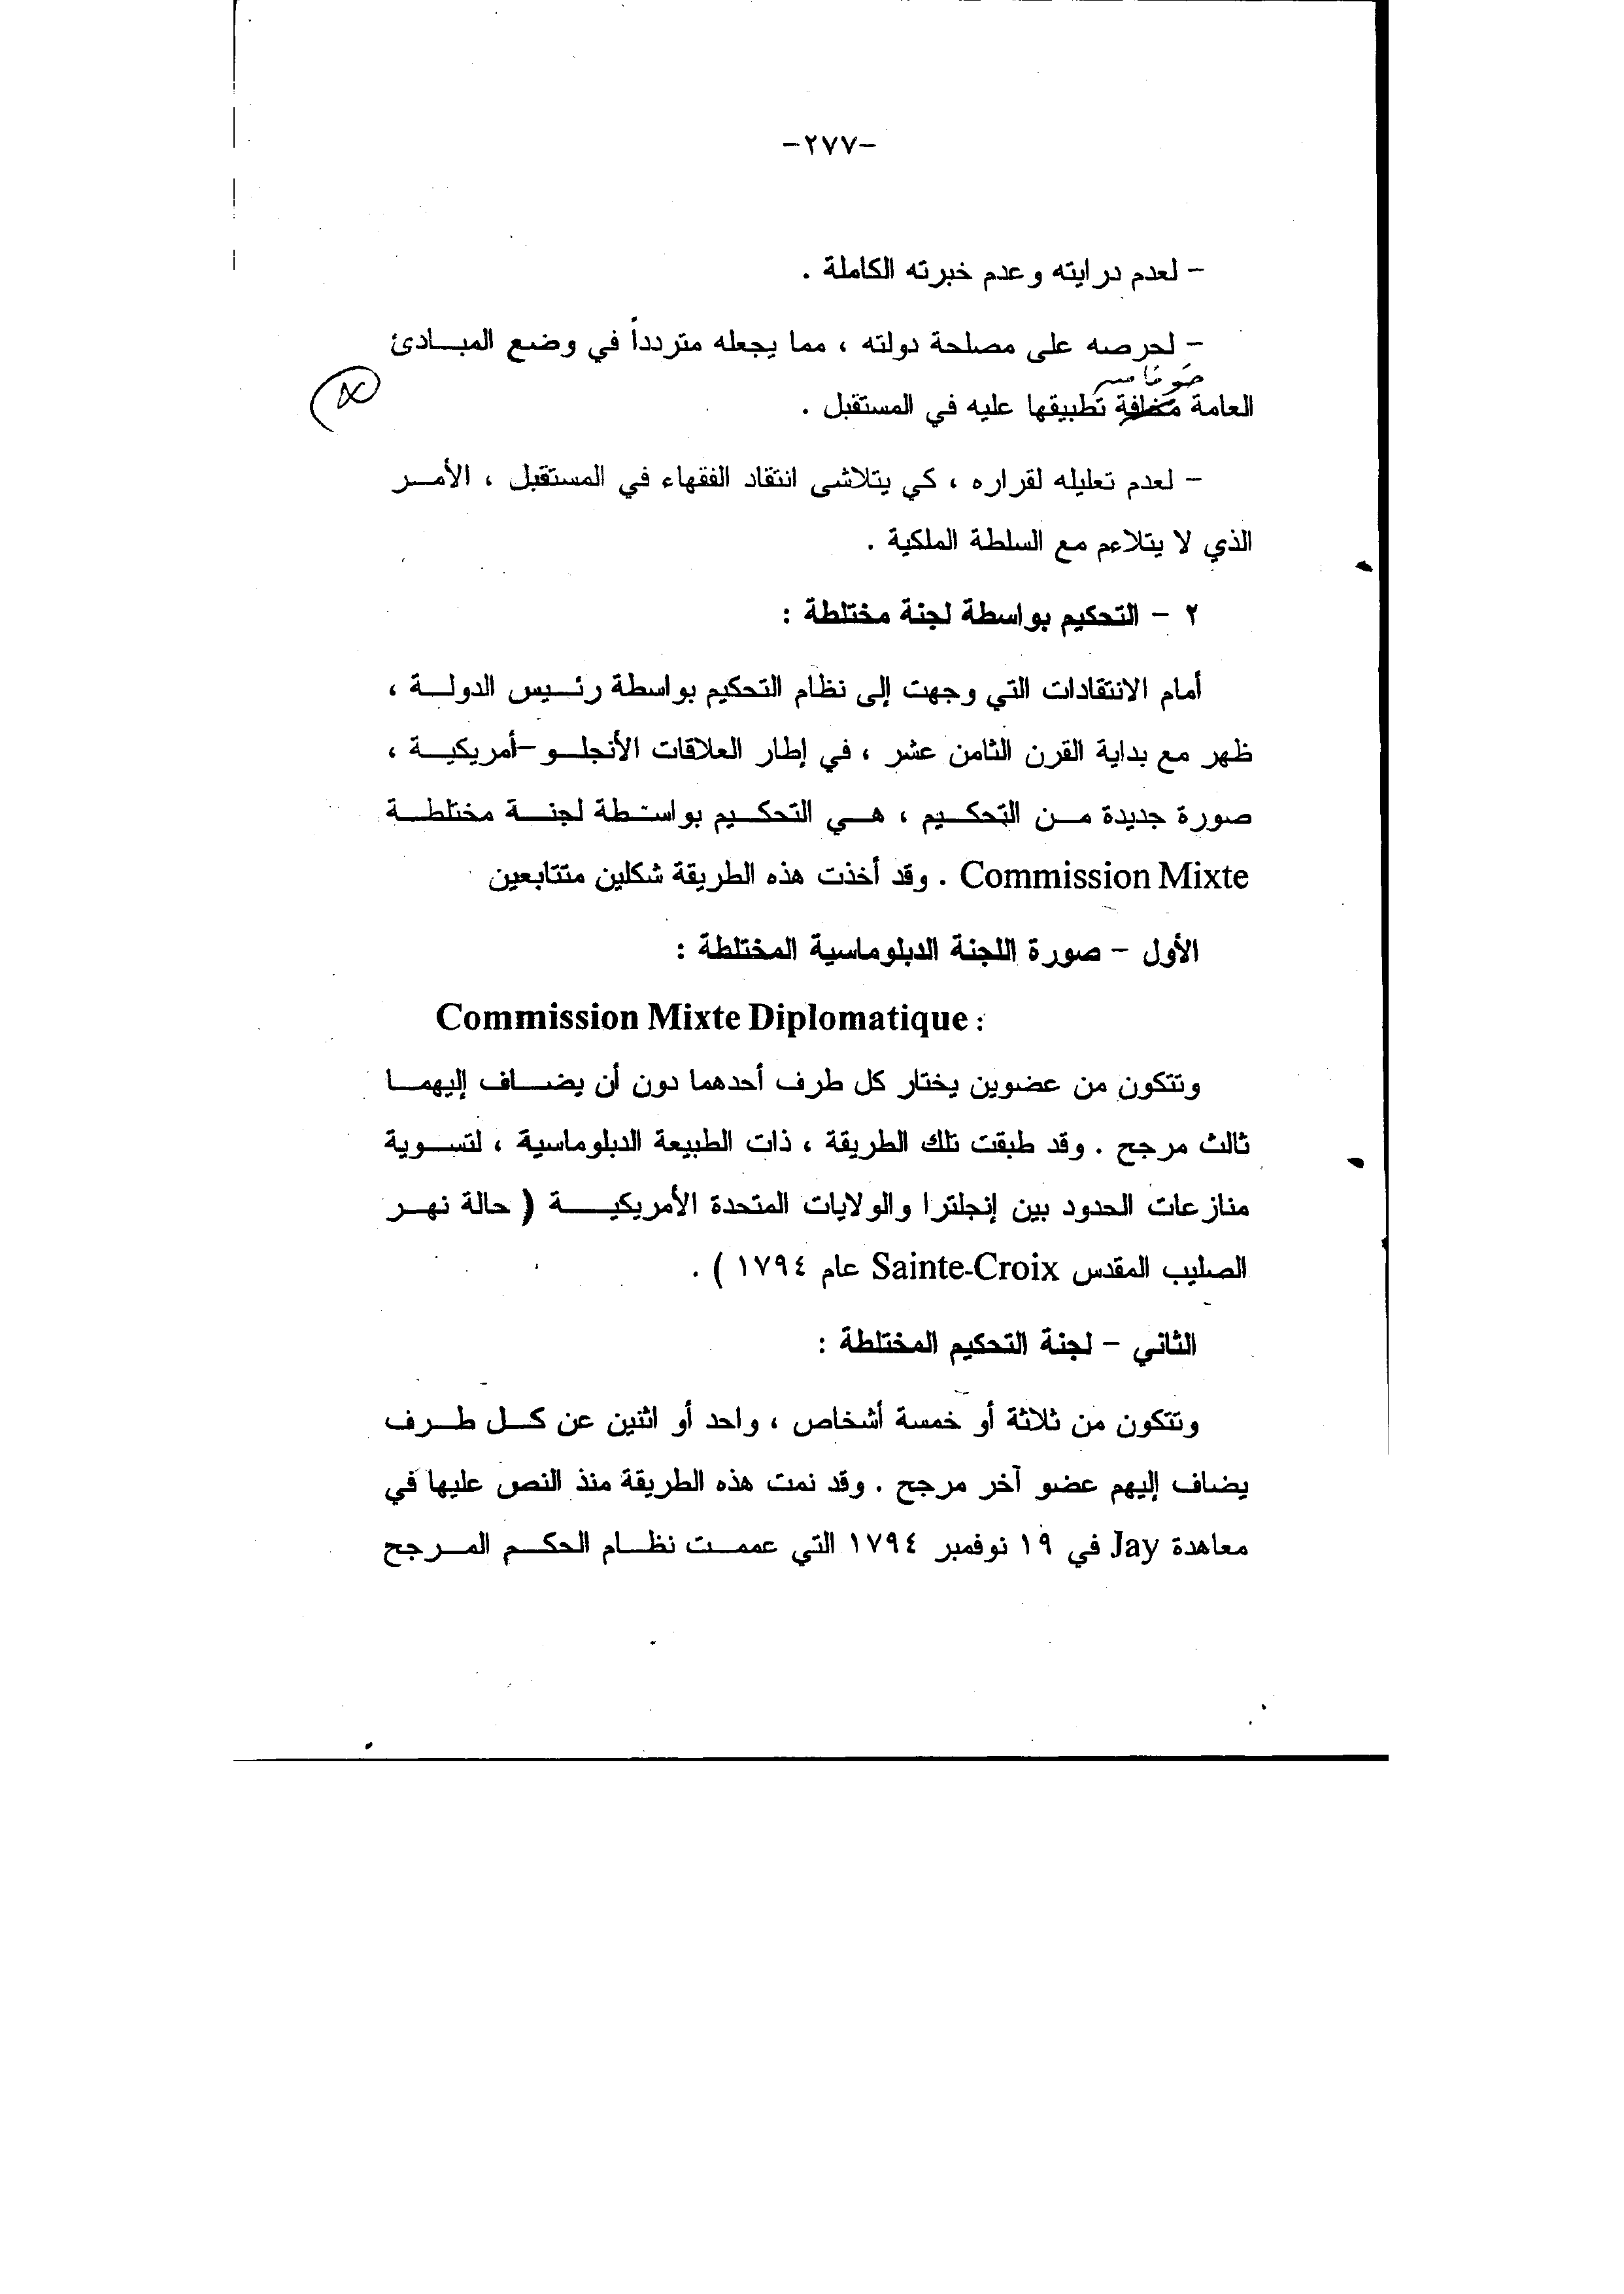 -٢٧٧-
- لعدم درايته وعدم خبرته الكاملة .
- لحرصه على مصلحة دولته ، مما يجعله متردداً في وضع المبادئ
خوفا من
العامة مخافة تطبيقها عليه في المستقبل .
- لعدم تعليله لقراره ، كي يتلاشى انتقاد الفقهاء في المستقبل ، الأمر
الذي لا يتلاءم مع السلطة الملكية .
٢ - التحكيم بواسطة لجنة مختلطة :
أمام الانتقادات التي وجهت إلى نظام التحكيم بواسطة رئيس الدولة ،
ظهر مع بداية القرن الثامن عشر ، في إطار العلاقات الأنجلو-أمريكية ،
صورة جديدة من التحكيم ، هي التحكيم بواسطة لجنة مختلطة
Commission Mixte . وقد أخذت هذه الطريقة شكلين متتابعين
الأول - صورة اللجنة الدبلوماسية المختلطة :
Commission Mixte Diplomatique :
وتتكون من عضوين يختار كل طرف أحدهما دون أن يضاف إليهما
ثالث مرجح . وقد طبقت تلك الطريقة ، ذات الطبيعة الدبلوماسية ، لتسوية
منازعات الحدود بين إنجلترا والولايات المتحدة الأمريكية ( حالة نهر
الصليب المقدس Sainte-Croix عام ١٧٩٤ ) .
الثاني - لجنة التحكيم المختلطة :
وتتكون من ثلاثة أو خمسة أشخاص ، واحد أو اثنين عن كل طرف
يضاف إليهم عضو آخر مرجح . وقد نمت هذه الطريقة منذ النص عليها في
معاهدة Jay في ١٩ نوفمبر ١٧٩٤ التي عممت نظام الحكم المرجح